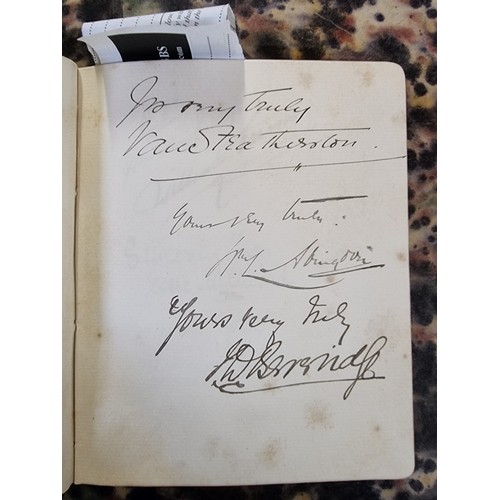 Yrs very truly
Vane Featherston.
Yours very truly.
Wm. L. Abingdon
Yours very truly
J D Beveridge